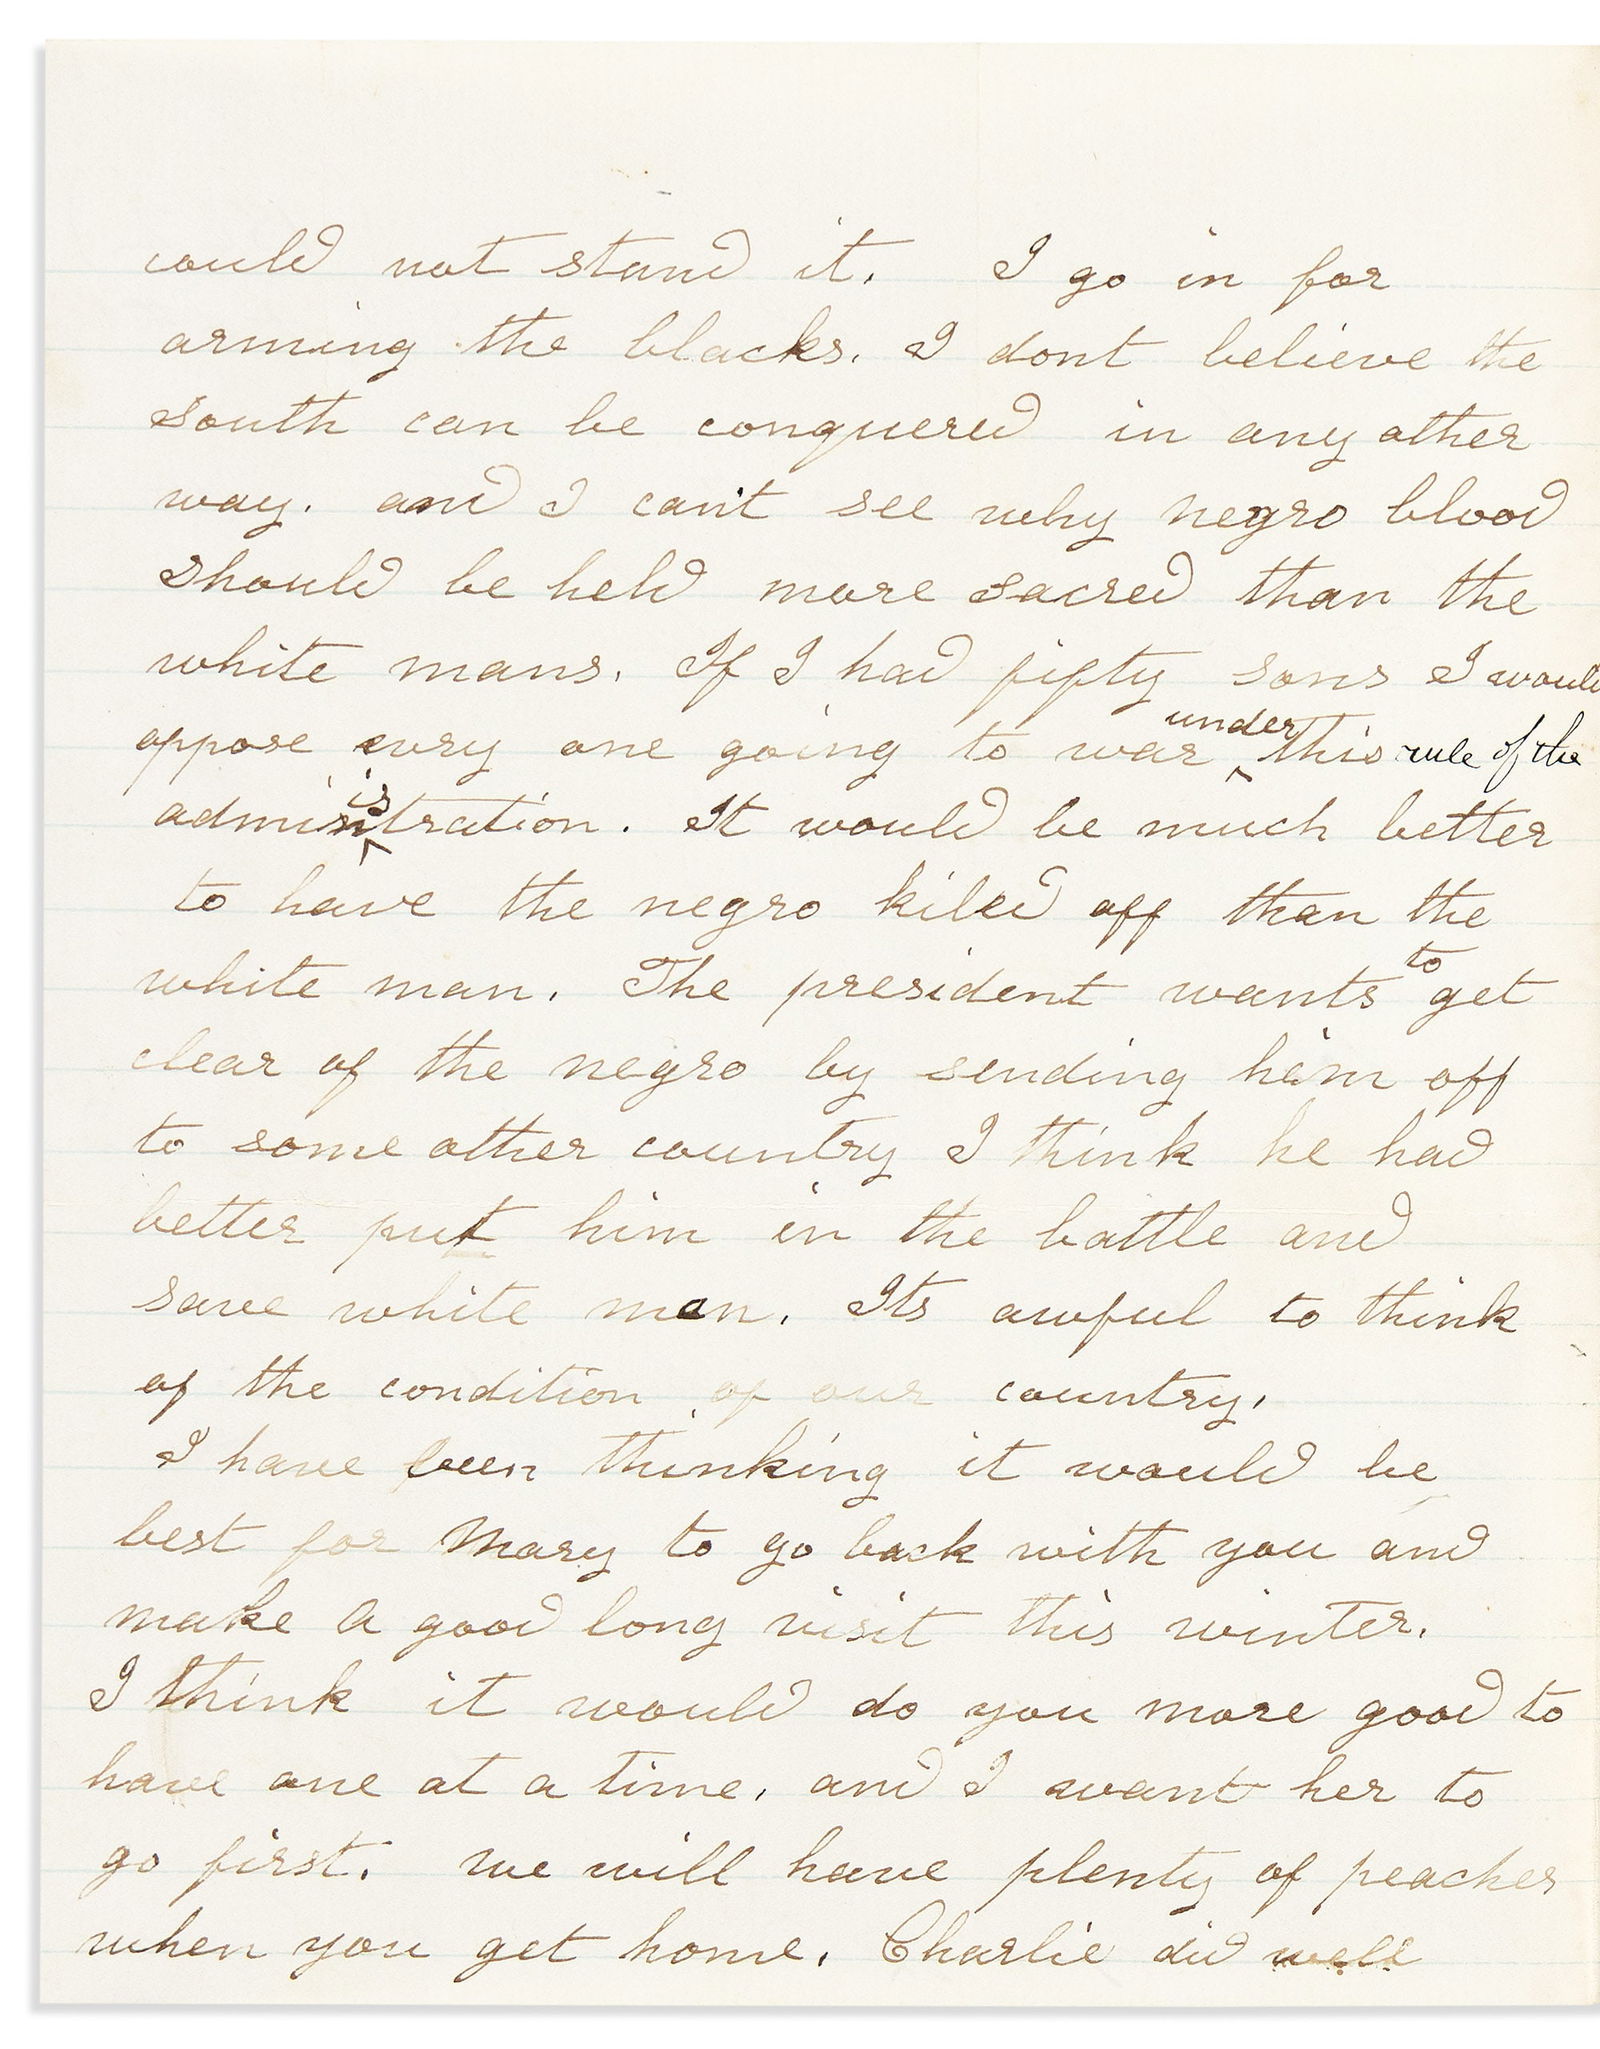 could not stand it. I go in for
arming the blacks. I dont believe the
South can be conquered in any other
way. and I can't see why negro blood
should be held more sacred than the
white mans. If I had fifty sons I would
oppose every one going to war under this rule of the
administration. It would be much better
to have the negro killed off than the
white man. The president wants to get
clear of the negro by sending him off
to some other country I think he had
better put him in the battle and
save white men. Its awful to think
of the condition of our country.
I have been thinking it would be
best for Mary to go back with you and
make a good long visit this winter.
I think it would do you more good to
have one at a time. and I want her to
go first. we will have plenty of peaches
when you get home. Charlie did well